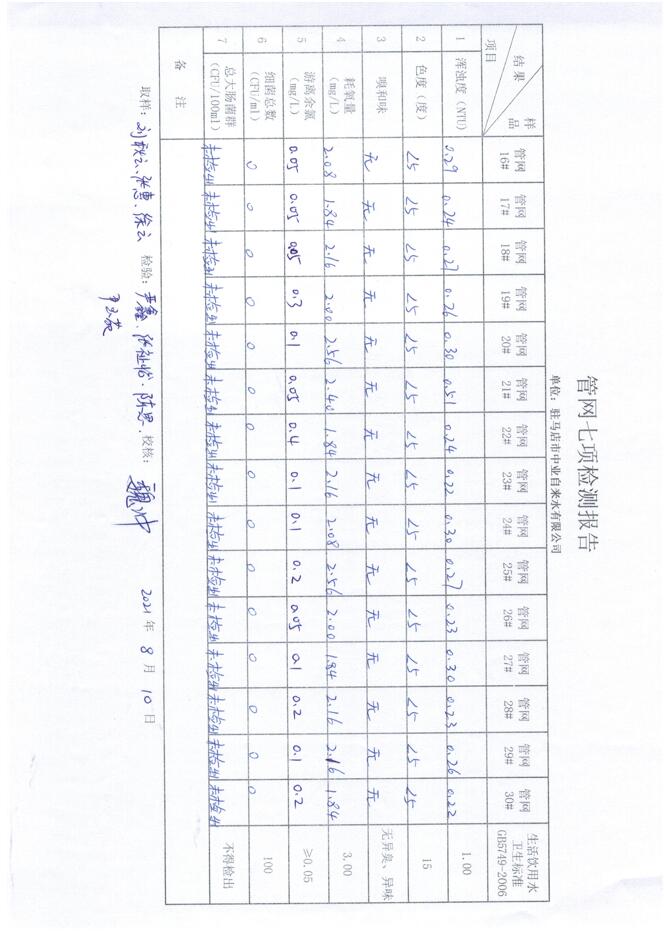 管网七项检测报告
单位：驻马店市中业自来水有限公司
结果 样品 项目 管网16# 管网17# 管网18# 管网19# 管网20# 管网21# 管网22# 管网23# 管网24# 管网25# 管网26# 管网27# 管网28# 管网29# 管网30# 生活饮用水卫生标准GB5749-2006
1 浑浊度（NTU） 0.29 0.24 0.27 0.26 0.30 0.51 0.24 0.22 0.30 0.27 0.23 0.30 0.23 0.26 0.22 1.00
2 色度（度） <5 <5 <5 <5 <5 <5 <5 <5 <5 <5 <5 <5 <5 <5 <5 15
3 嗅和味 无 无 无 无 无 无 无 无 无 无 无 无 无 无 无 无异臭、异味
4 耗氧量（mg/L） 2.08 1.84 2.16 2.00 2.56 2.40 1.84 2.16 2.08 2.56 2.00 1.84 2.16 2.16 1.84 3.00
5 游离余氯（mg/L） 0.05 0.05 0.05 0.3 0.1 0.05 0.4 0.1 0.1 0.2 0.05 0.1 0.2 0.1 0.2 ≥0.05
6 细菌总数（CFU/ml） 0 0 0 0 0 0 0 0 0 0 0 0 0 0 0 100
7 总大肠菌群（CFU/100ml） 未检出 未检出 未检出 未检出 未检出 未检出 未检出 未检出 未检出 未检出 未检出 未检出 未检出 未检出 未检出 不得检出
备注
取样： 张惠、徐云 检验： 陈思、 校核： 2021年8月10日